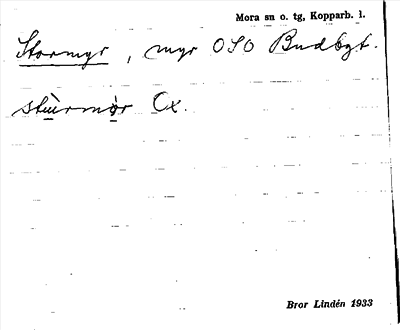 Mora sn o. tg, Kopparb. l.
Stormyr, myr OSO Budbgt.
stu̇̀rmȯ̤r Öx.
Bror Lindén 1933